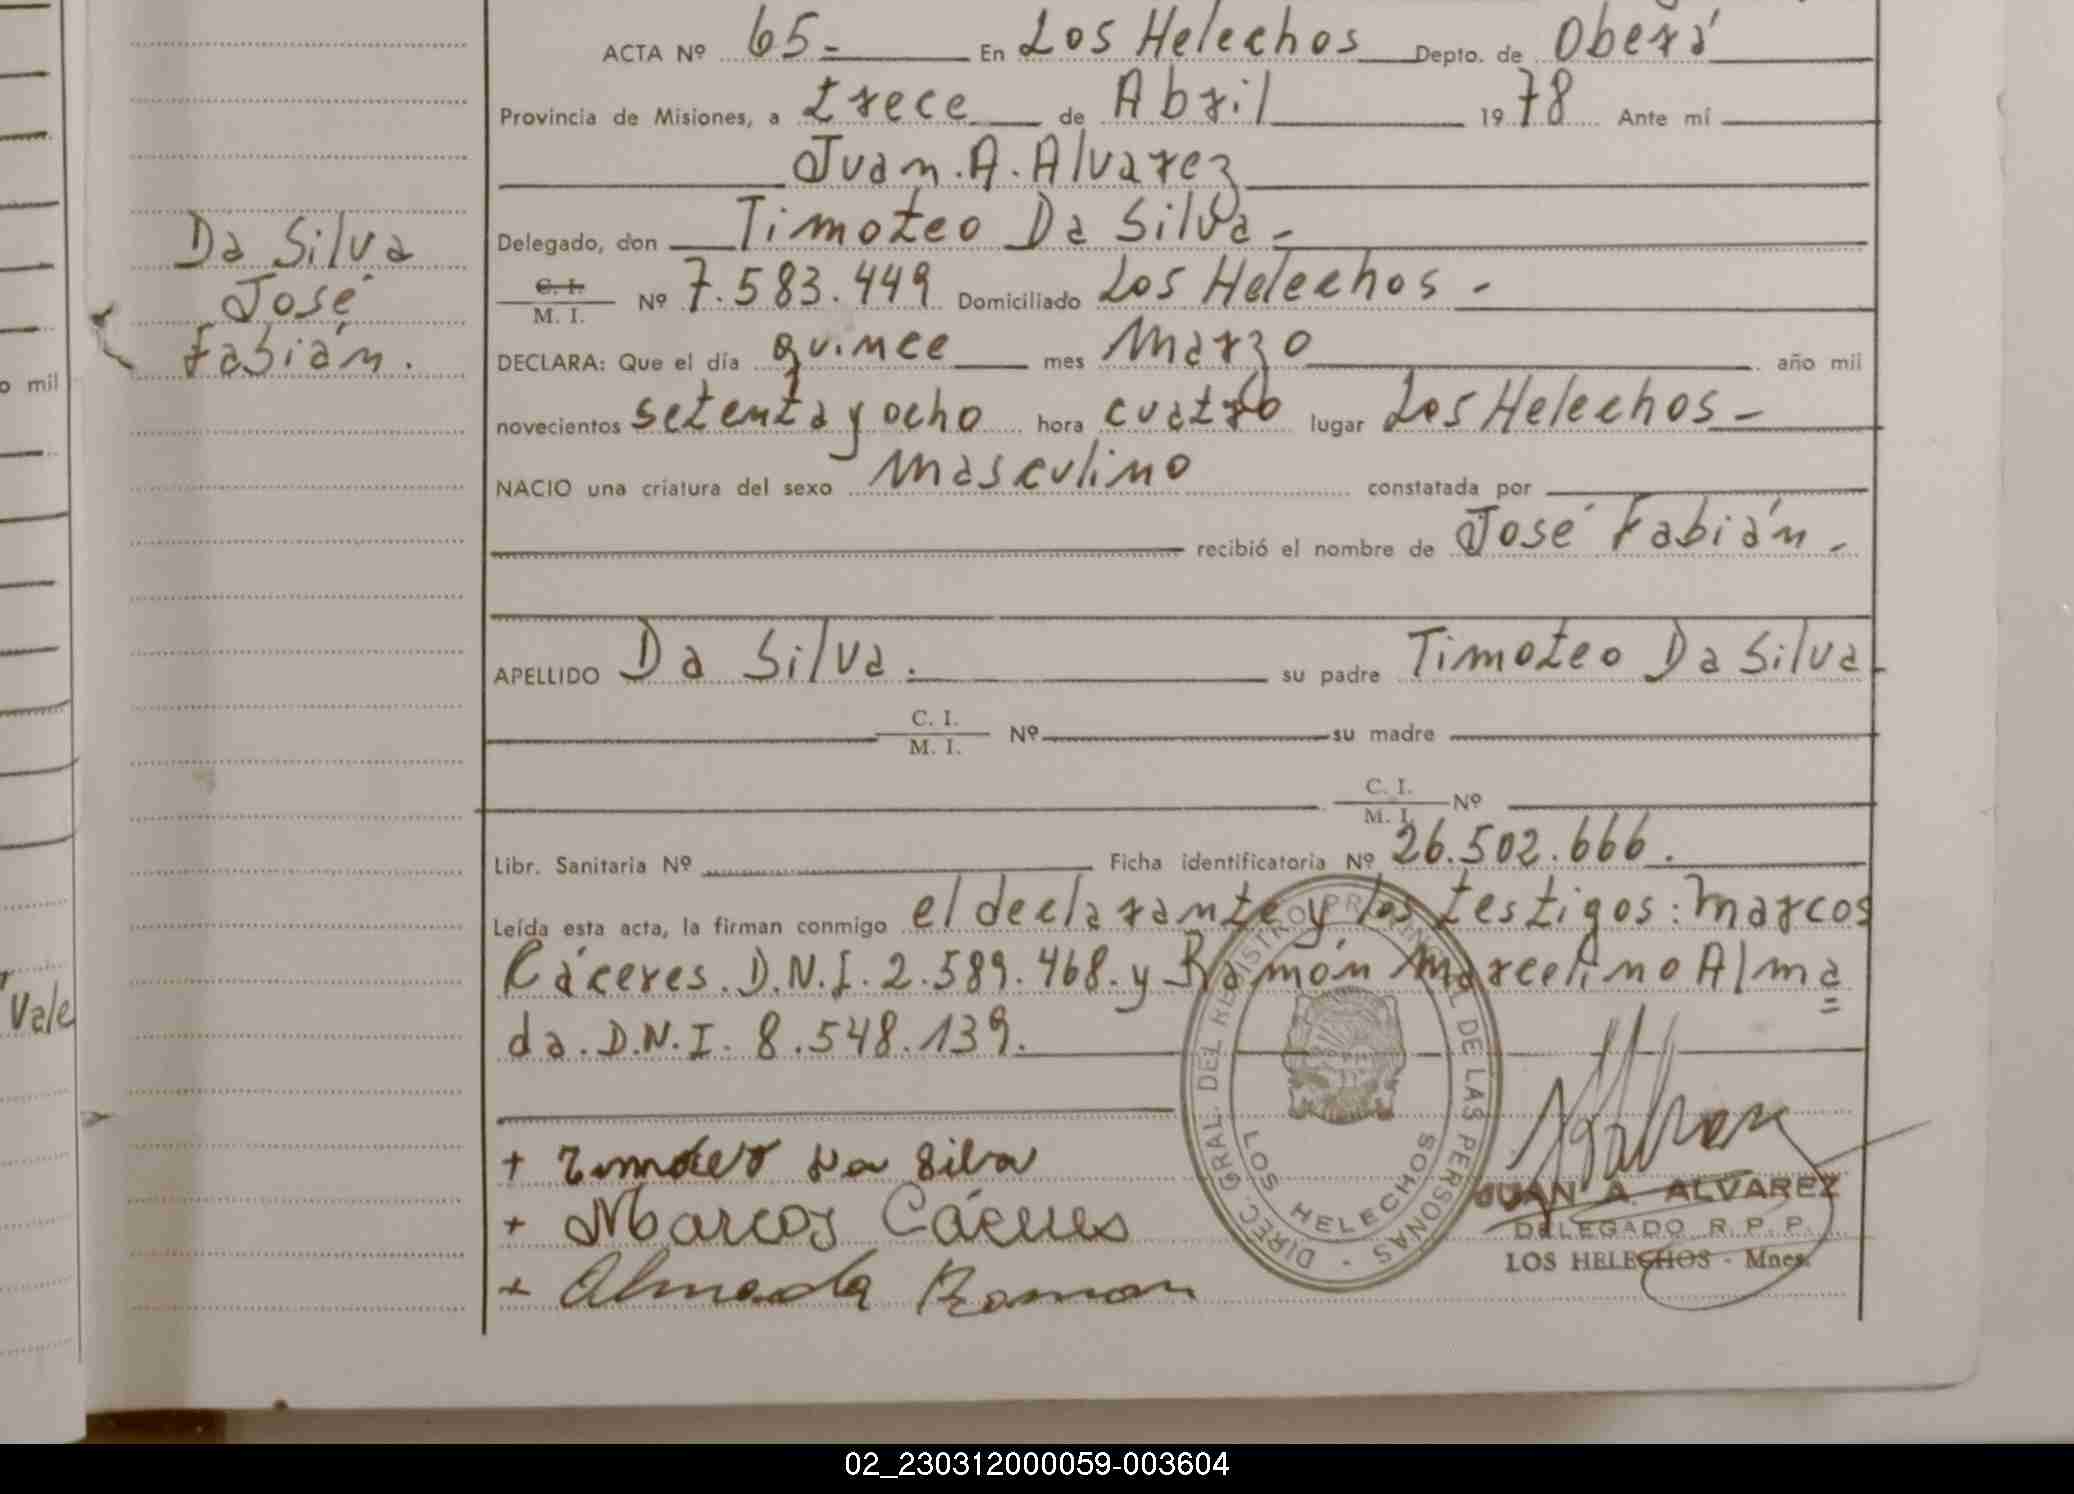 ACTA Nº 65.- En Los Helechos Depto. de Oberá
Provincia de Misiones, a trece de Abril 1978 Ante mí
Juan.A.Alvarez
Delegado, don Timoteo Da Silva.-
C. I.
M. I. Nº 7.583.449 Domiciliado Los Helechos -
DECLARA: Que el día quince mes Marzo año mil
novecientos setenta y ocho hora cuatro lugar Los Helechos -
NACIO una criatura del sexo Masculino constatada por
recibió el nombre de José Fabián.-
APELLIDO Da Silva. su padre Timoteo Da Silva
C. I.
M. I. Nº su madre
C. I.
M. I. Nº
Libr. Sanitaria Nº Ficha identificatoria Nº 26.502.666.
Leída esta acta, la firman conmigo el declarante y los testigos: Marcos
Cáceres. D.N.I. 2.589.468. y Ramón Marcelino Alma
da. D.N.I. 8.548.139.
+ Timoteo Da Silva
+ Marcos Cáceres
+ Almada Ramon
Da Silva
José
Fabián.
DIREC. GRAL. DEL REGISTRO PROVINCIAL DE LAS PERSONAS -
LOS HELECHOS
JUAN A. ALVAREZ
DELEGADO R. P. P.
LOS HELECHOS - Mnes.
o mil
Vale
02_230312000059-003604